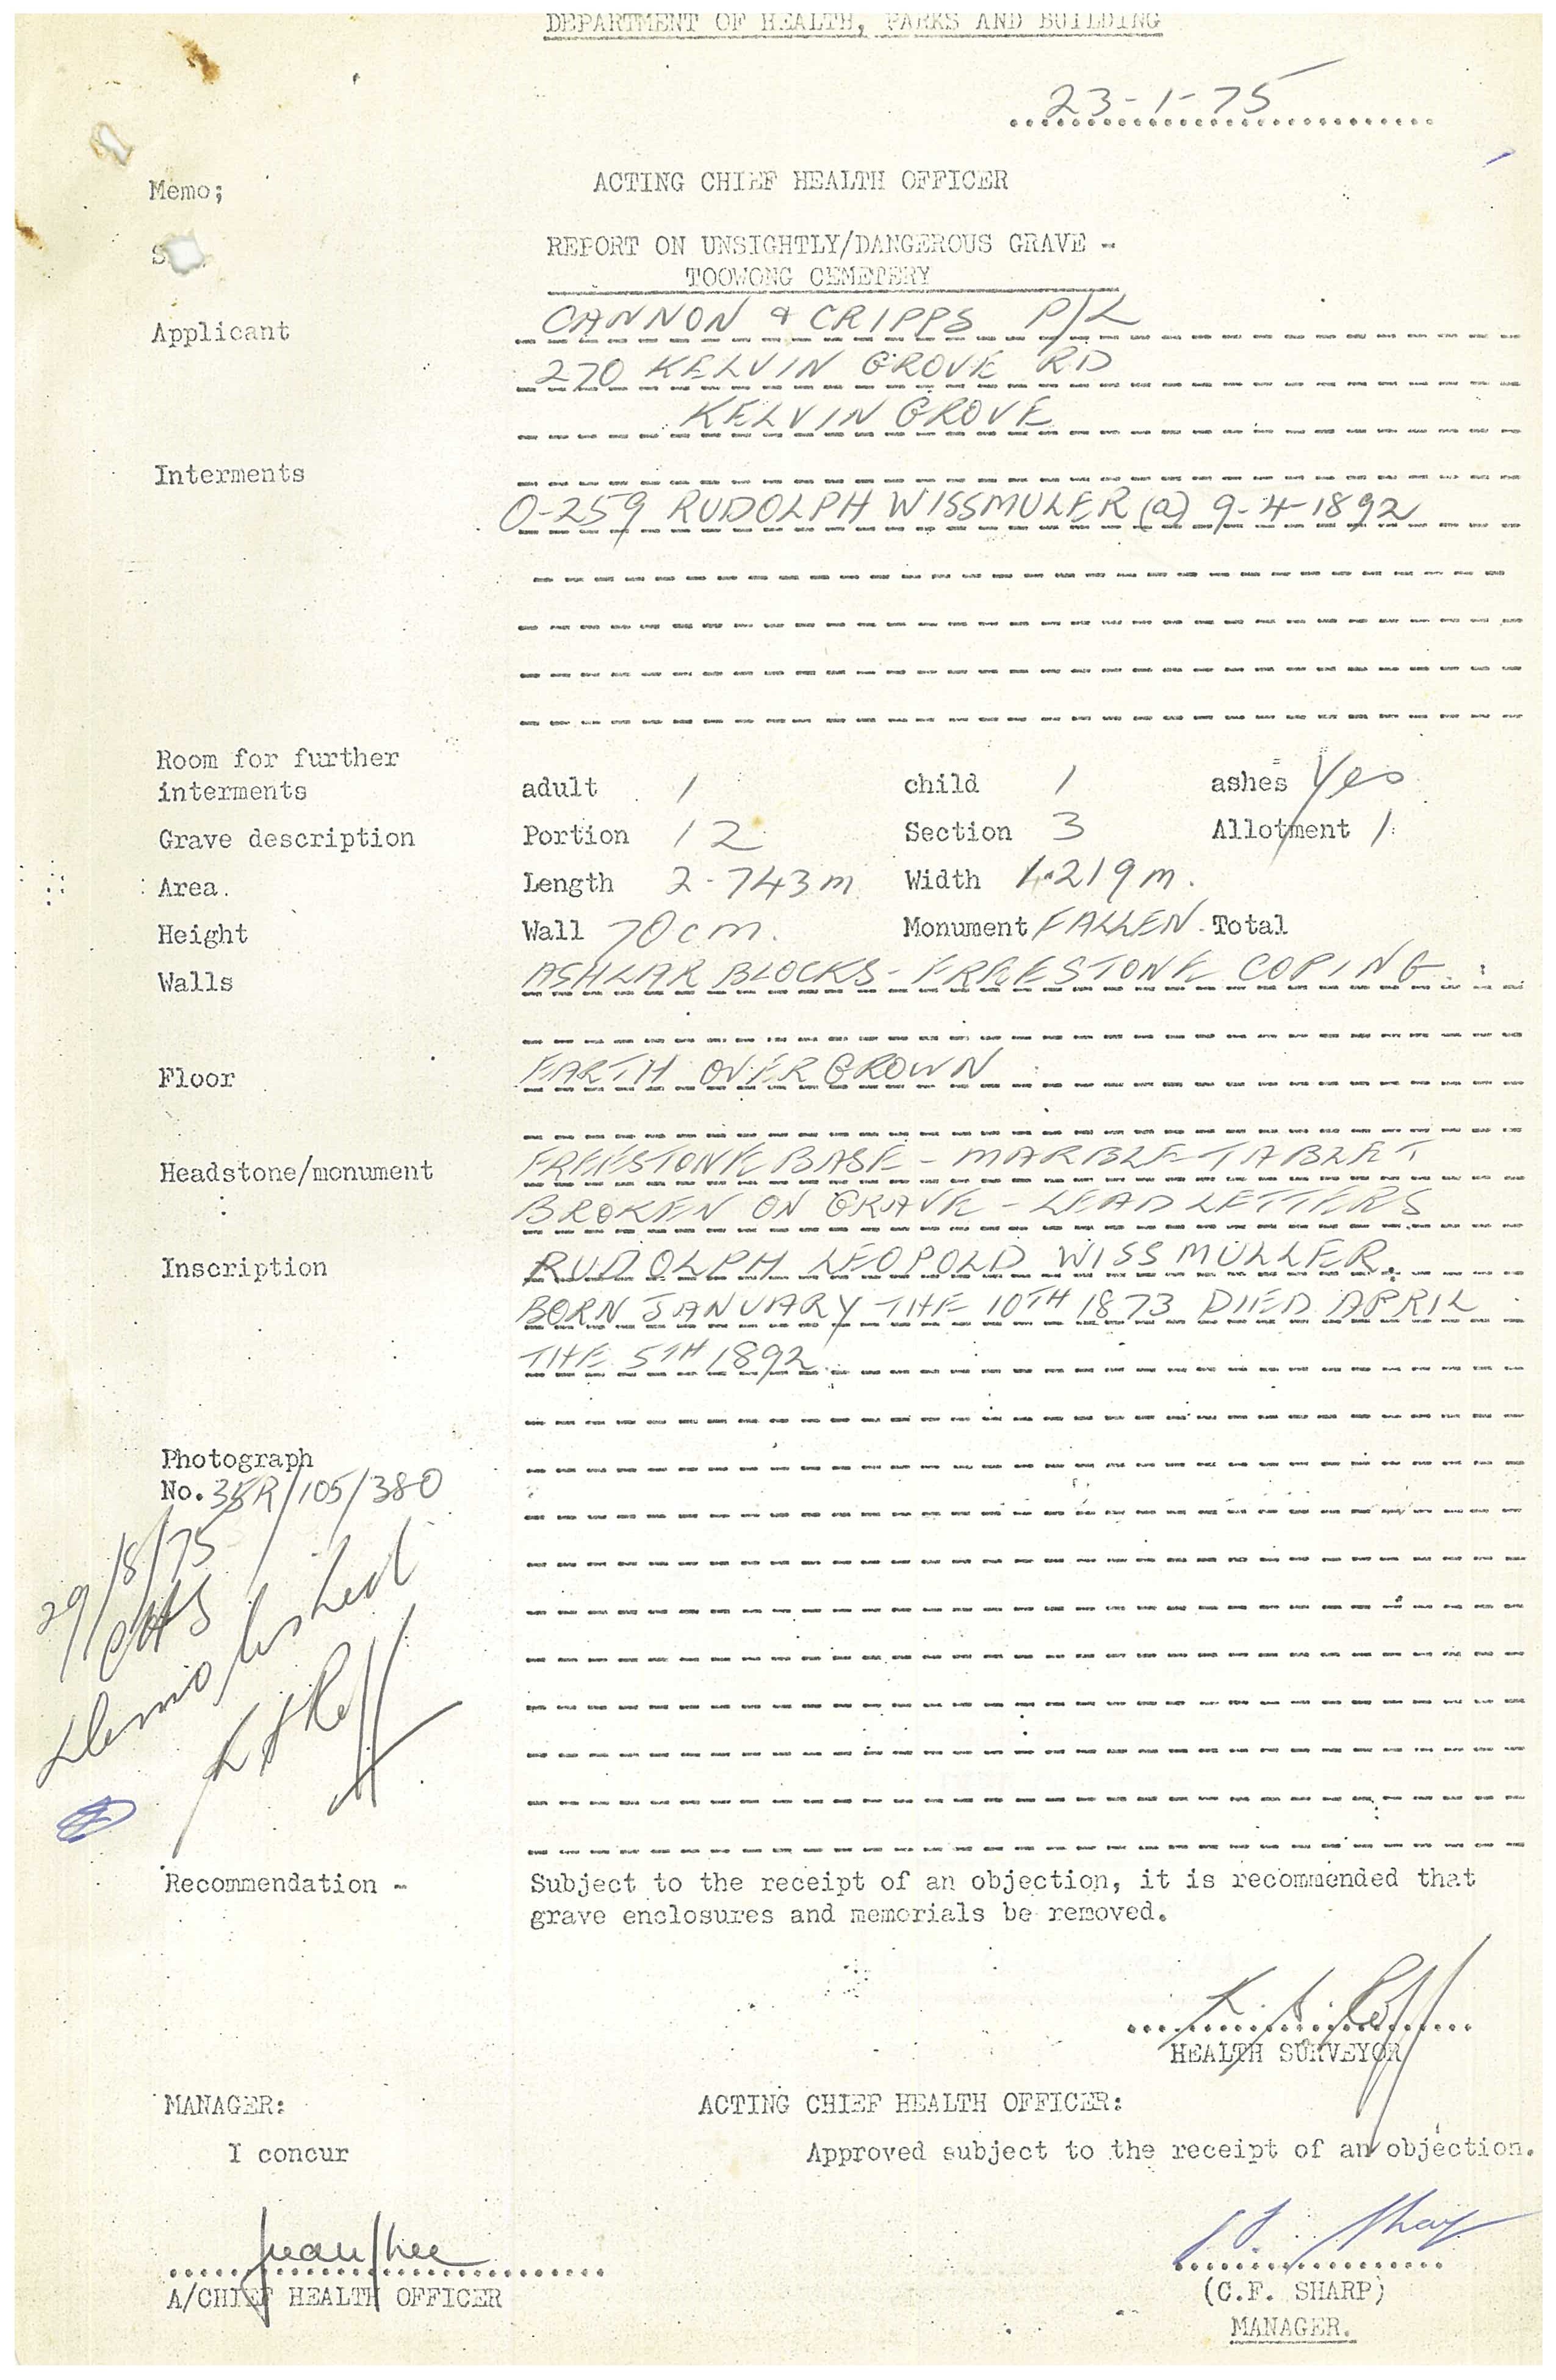 DEPARTMENT OF HEALTH, PARKS AND BUILDING
23-1-75
Memo; ACTING CHIEF HEALTH OFFICER
REPORT ON UNSIGHTLY/DANGEROUS GRAVE -
TOOWONG CEMETERY
Applicant CANNON & CRIPPS P/L
270 KELVIN GROVE RD
KELVIN GROVE
Interments
O-259 RUDOLPH WISSMULER (a) 9-4-1892
Room for further
interments adult 1 child 1 ashes Yes
Grave description Portion 12 Section 3 Allotment 1
Area. Length 2.743m Width 1.219m.
Height Wall 70cm. Monument FALLEN. Total
Walls ASHLAR BLOCKS - FREESTONE COPING.
Floor EARTH OVERGROWN
Headstone/monument FREESTONE BASE - MARBLE TABLET
BROKEN ON GRAVE - LEAD LETTERS
Inscription RUDOLPH LEOPOLD WISSMULLER.
BORN JANUARY THE 10TH 1873 DIED APRIL
THE 5TH 1892
Photograph
No. 35R/105/380
29/8/75
Demolished
Recommendation - Subject to the receipt of an objection, it is recommended that
grave enclosures and memorials be removed.
HEALTH SURVEYOR
MANAGER: ACTING CHIEF HEALTH OFFICER:
I concur Approved subject to the receipt of an objection.
A/CHIEF HEALTH OFFICER
(C.F. SHARP)
MANAGER.